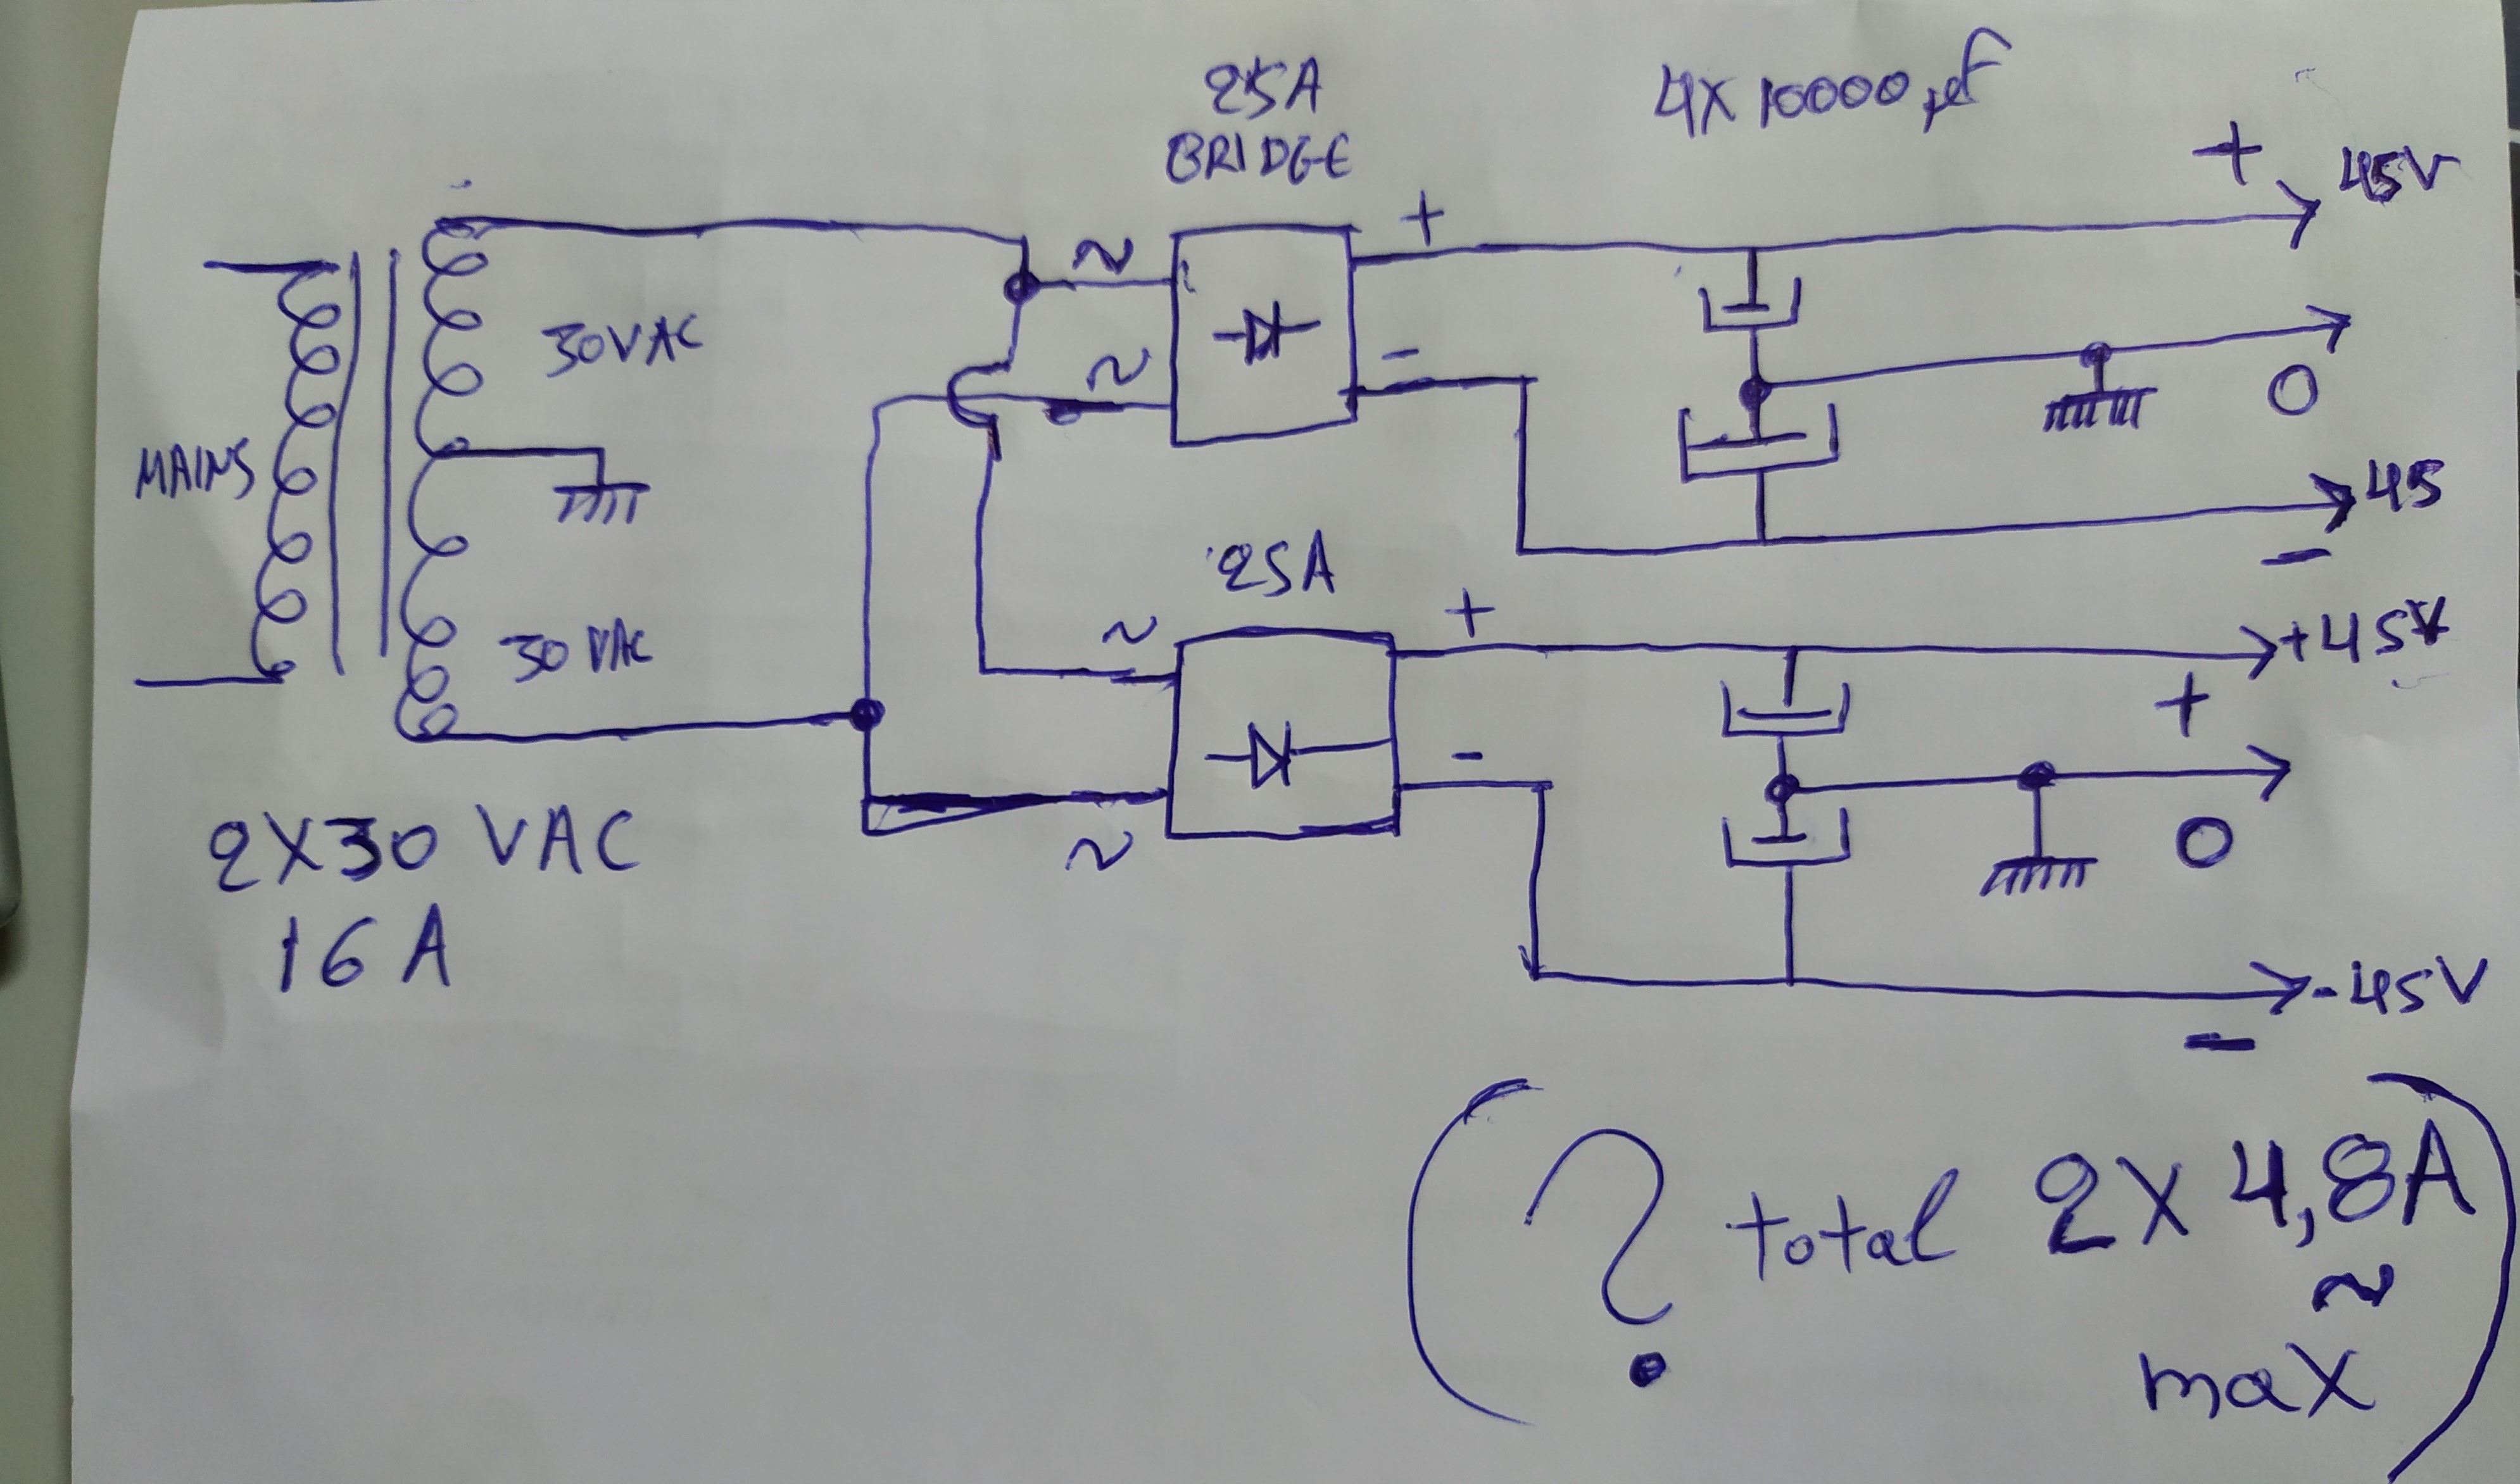 25A
BRIDGE
4X 10000 µf
+
45V
+
~
30VAC
~
-
0
MAINS
45
-
25A
+
~
+45V
30 VAC
+
-
~
0
2X30 VAC
16 A
-45V
-
? total 2X 4,8A
~
max